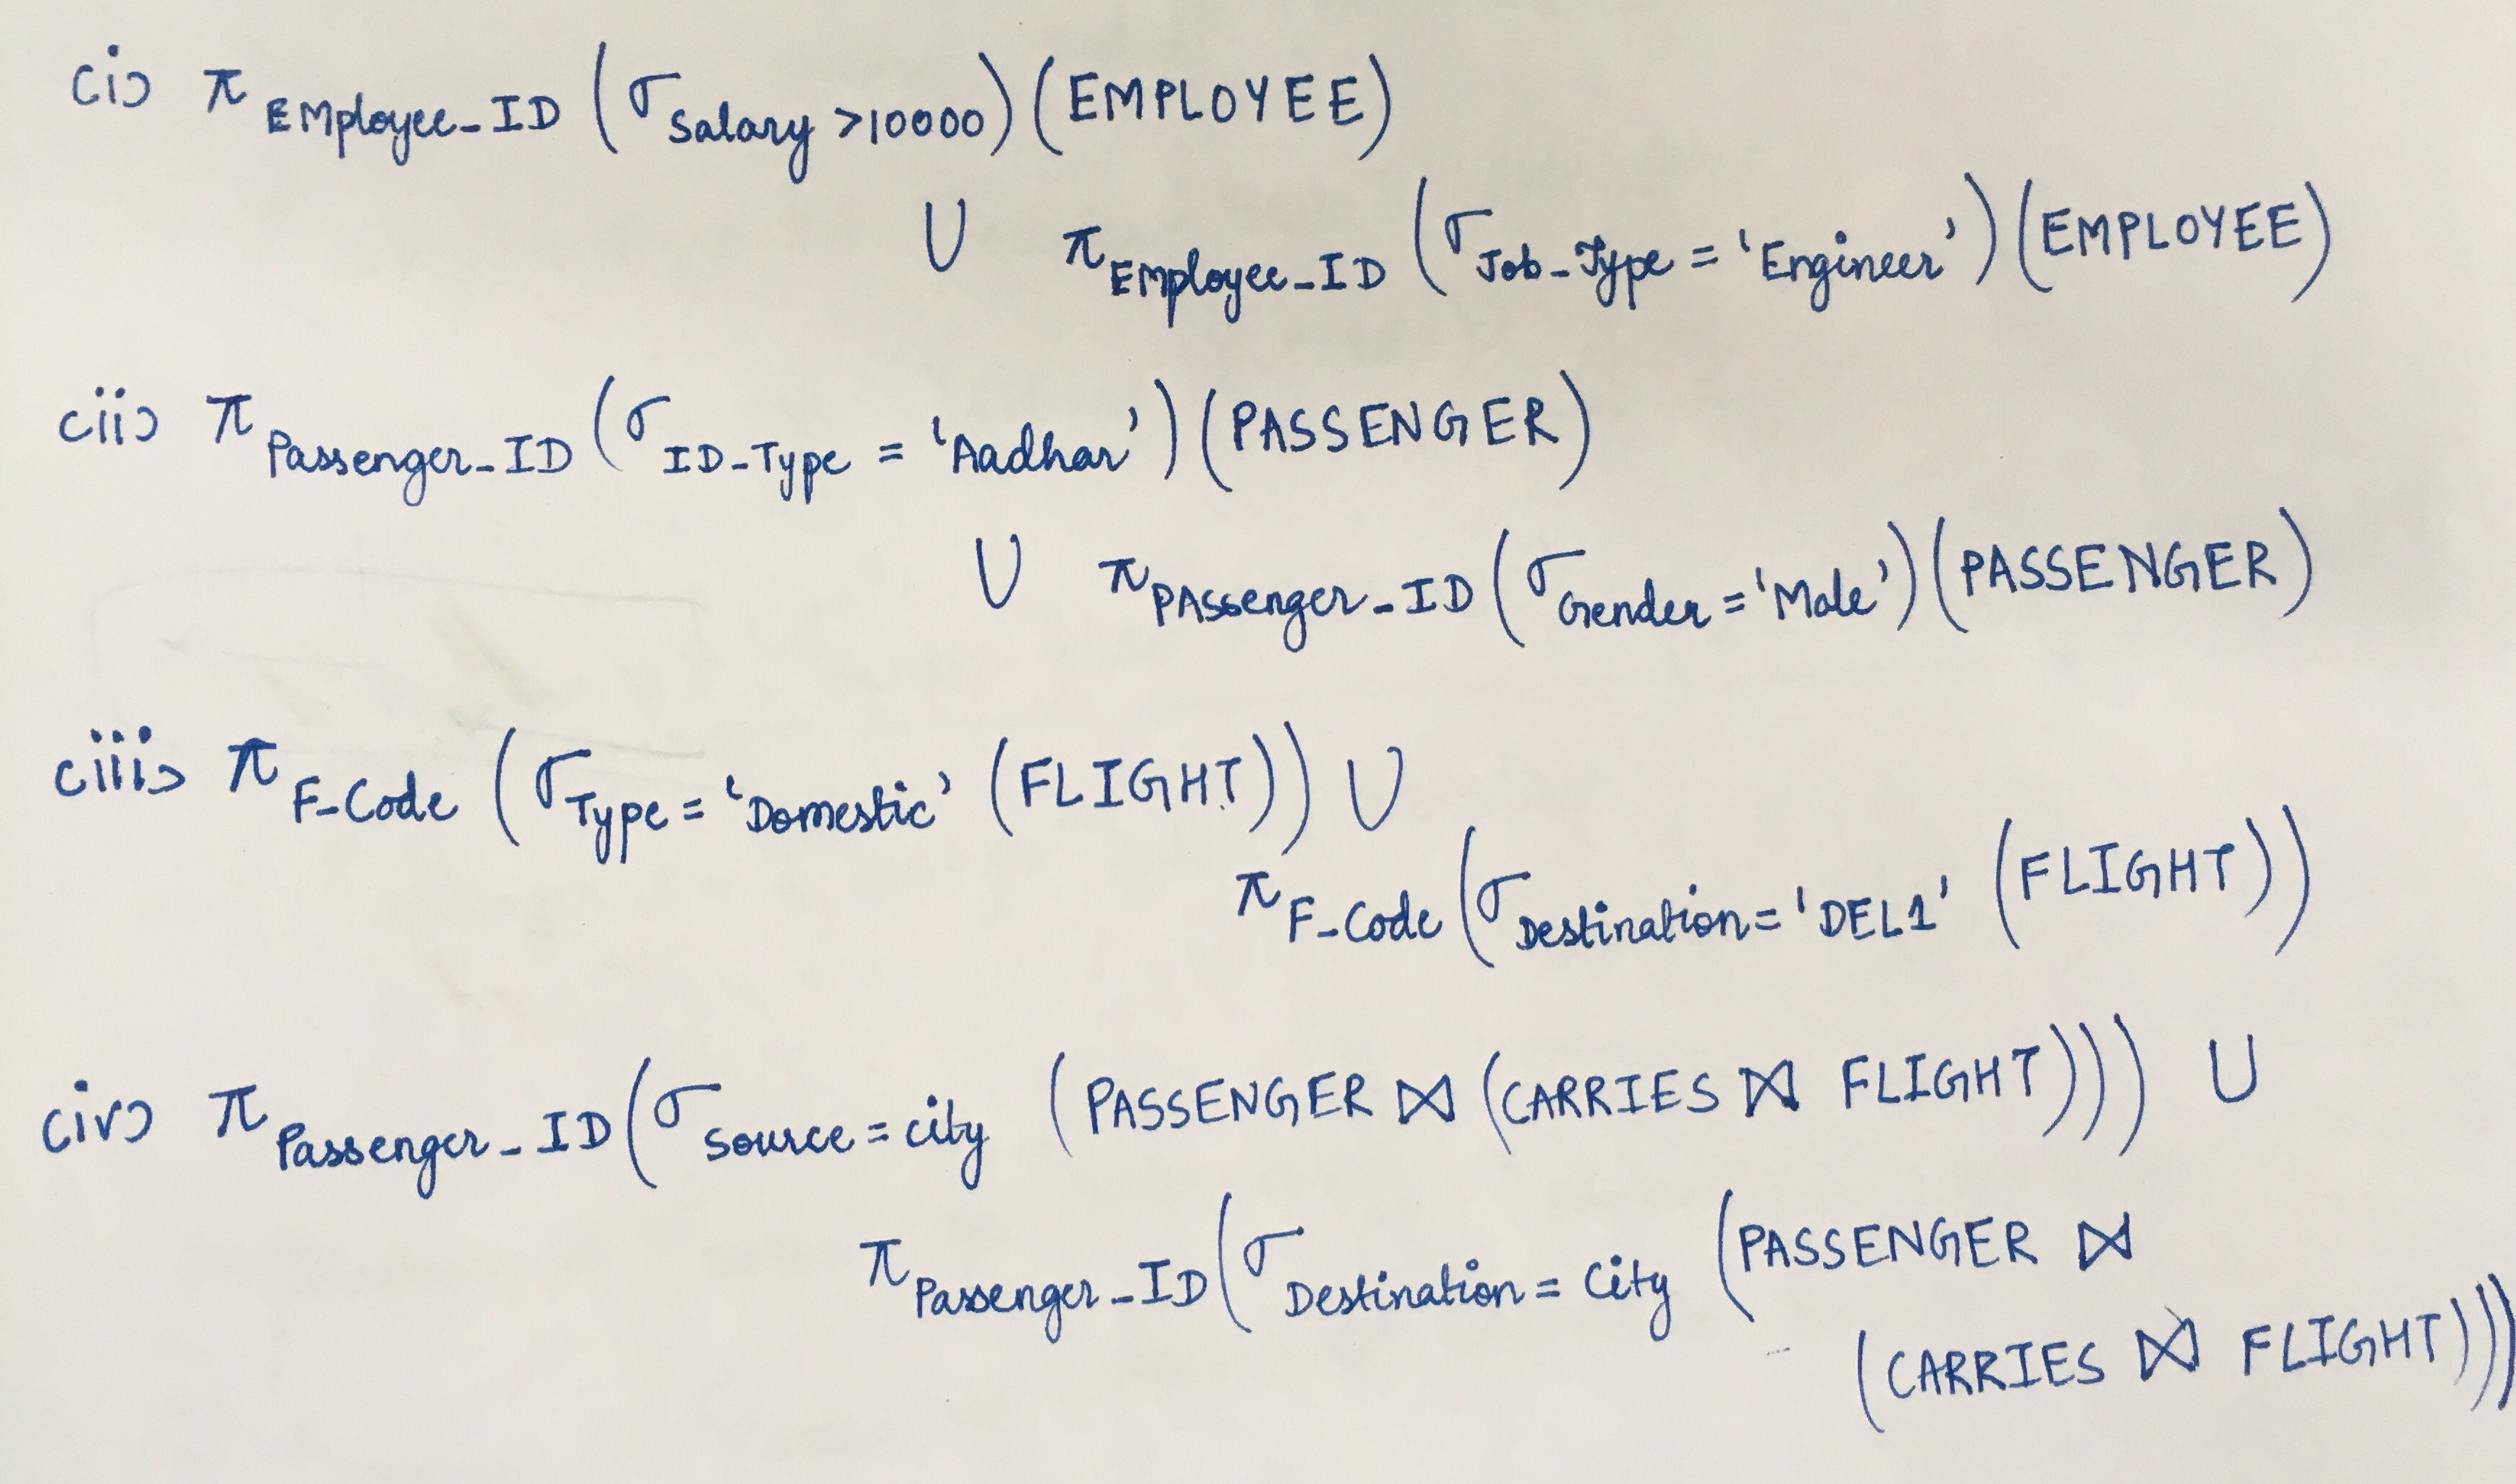 (i) π EMployee_ID (σ Salary >10000) (EMPLOYEE)
∪ π Employee_ID (σ Job_Type = 'Engineer') (EMPLOYEE)
(ii) π Passenger_ID (σ ID_Type = 'Aadhar') (PASSENGER)
∪ π PAssenger_ID (σ Gender = 'Male') (PASSENGER)
(iii) π F_Code (σ Type = 'Domestic' (FLIGHT)) ∪
π F_Code (σ Destination = 'DEL1' (FLIGHT))
(iv) π Passenger_ID (σ Source = city (PASSENGER ⋈ (CARRIES ⋈ FLIGHT))) ∪
π Passenger_ID (σ Destination = City (PASSENGER ⋈
(CARRIES ⋈ FLIGHT)))